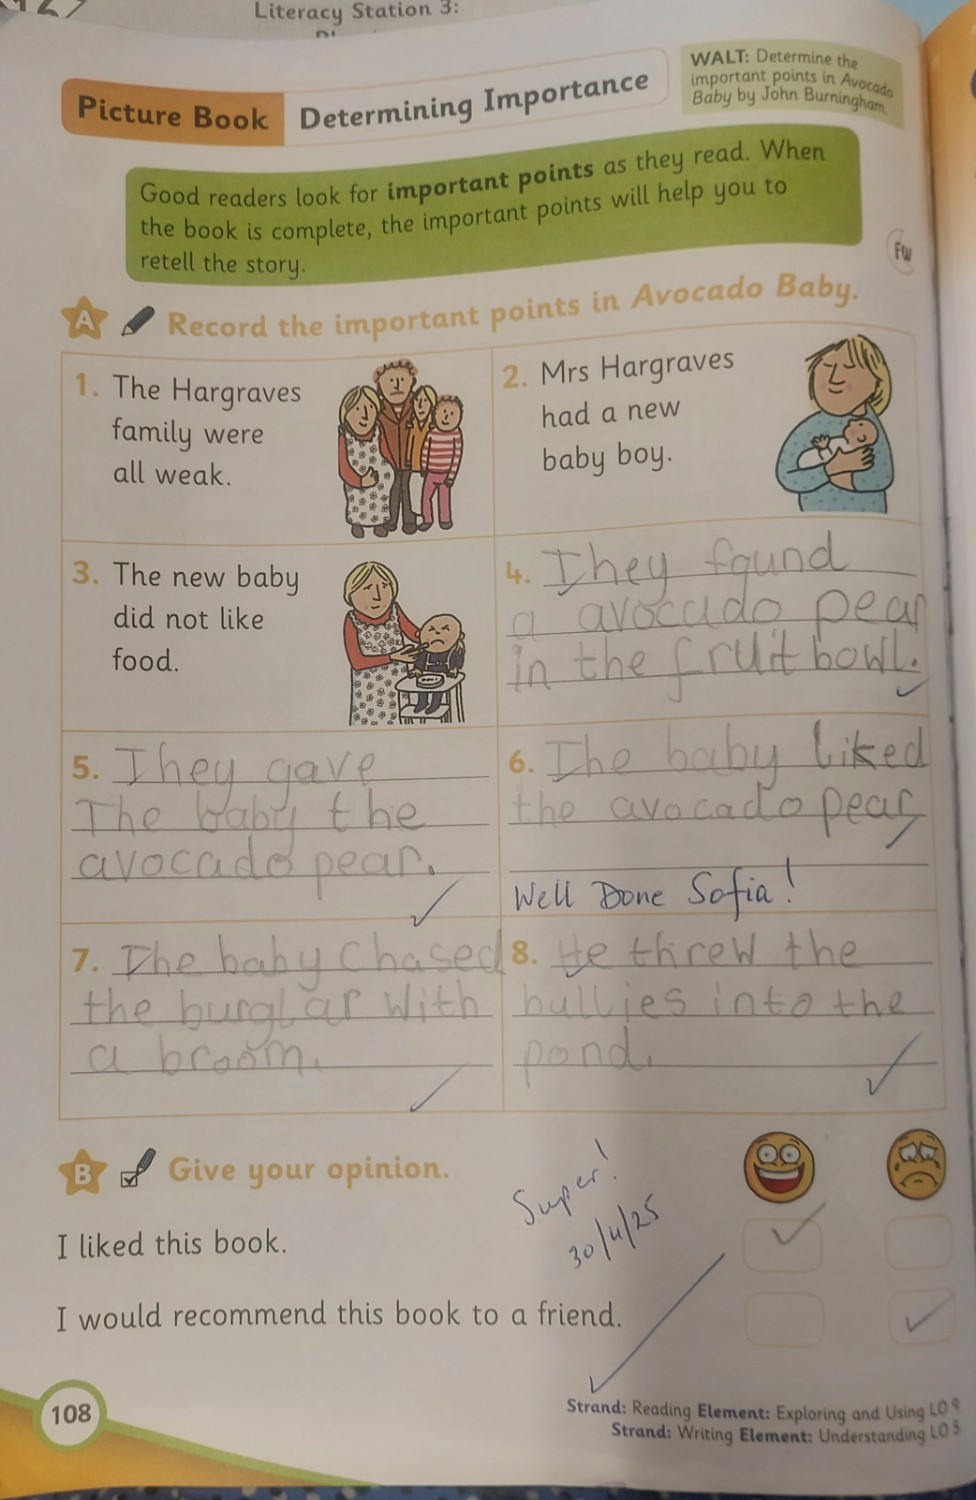 Literacy Station 3:
WALT: Determine the
important points in Avocado
Baby by John Burningham.
Picture Book
Determining Importance
Good readers look for important points as they read. When
the book is complete, the important points will help you to
retell the story.
FW
A Record the important points in Avocado Baby.
1. The Hargraves
family were
all weak.
2. Mrs Hargraves
had a new
baby boy.
3. The new baby
did not like
food.
4. They found
a avocado pear
in the fruit bowl.
5. They gave
The baby the
avocado pear.
6. The baby liked
the avocado pear
Well Done Sofia!
7. The baby Chased
the burglar With
a broom.
8. He threw the
bullies into the
pond.
B Give your opinion.
Super!
30/4/25
I liked this book.
I would recommend this book to a friend.
108
Strand: Reading Element: Exploring and Using LO 9
Strand: Writing Element: Understanding LO 5